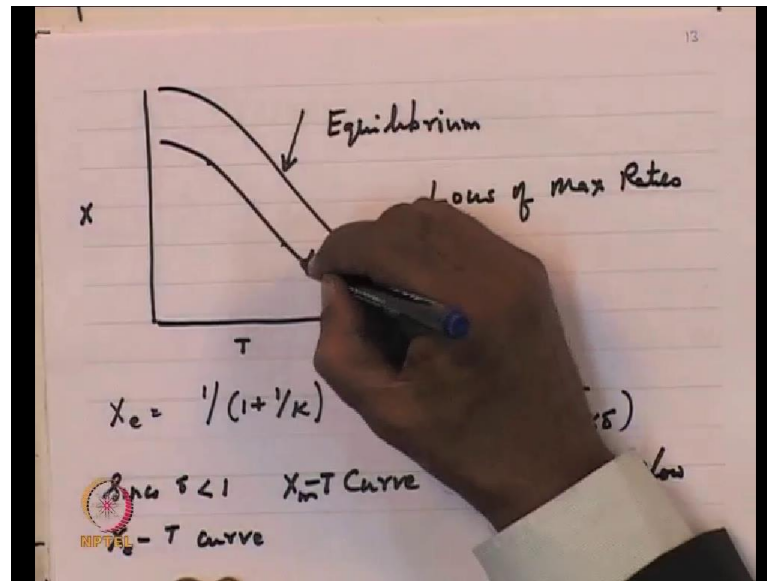 13
Equilibrium
Locus of Max Rates
X
T
Xe = 1/(1+1/K)
Since δ < 1 Xm-T Curve
Xe - T curve
NPTEL